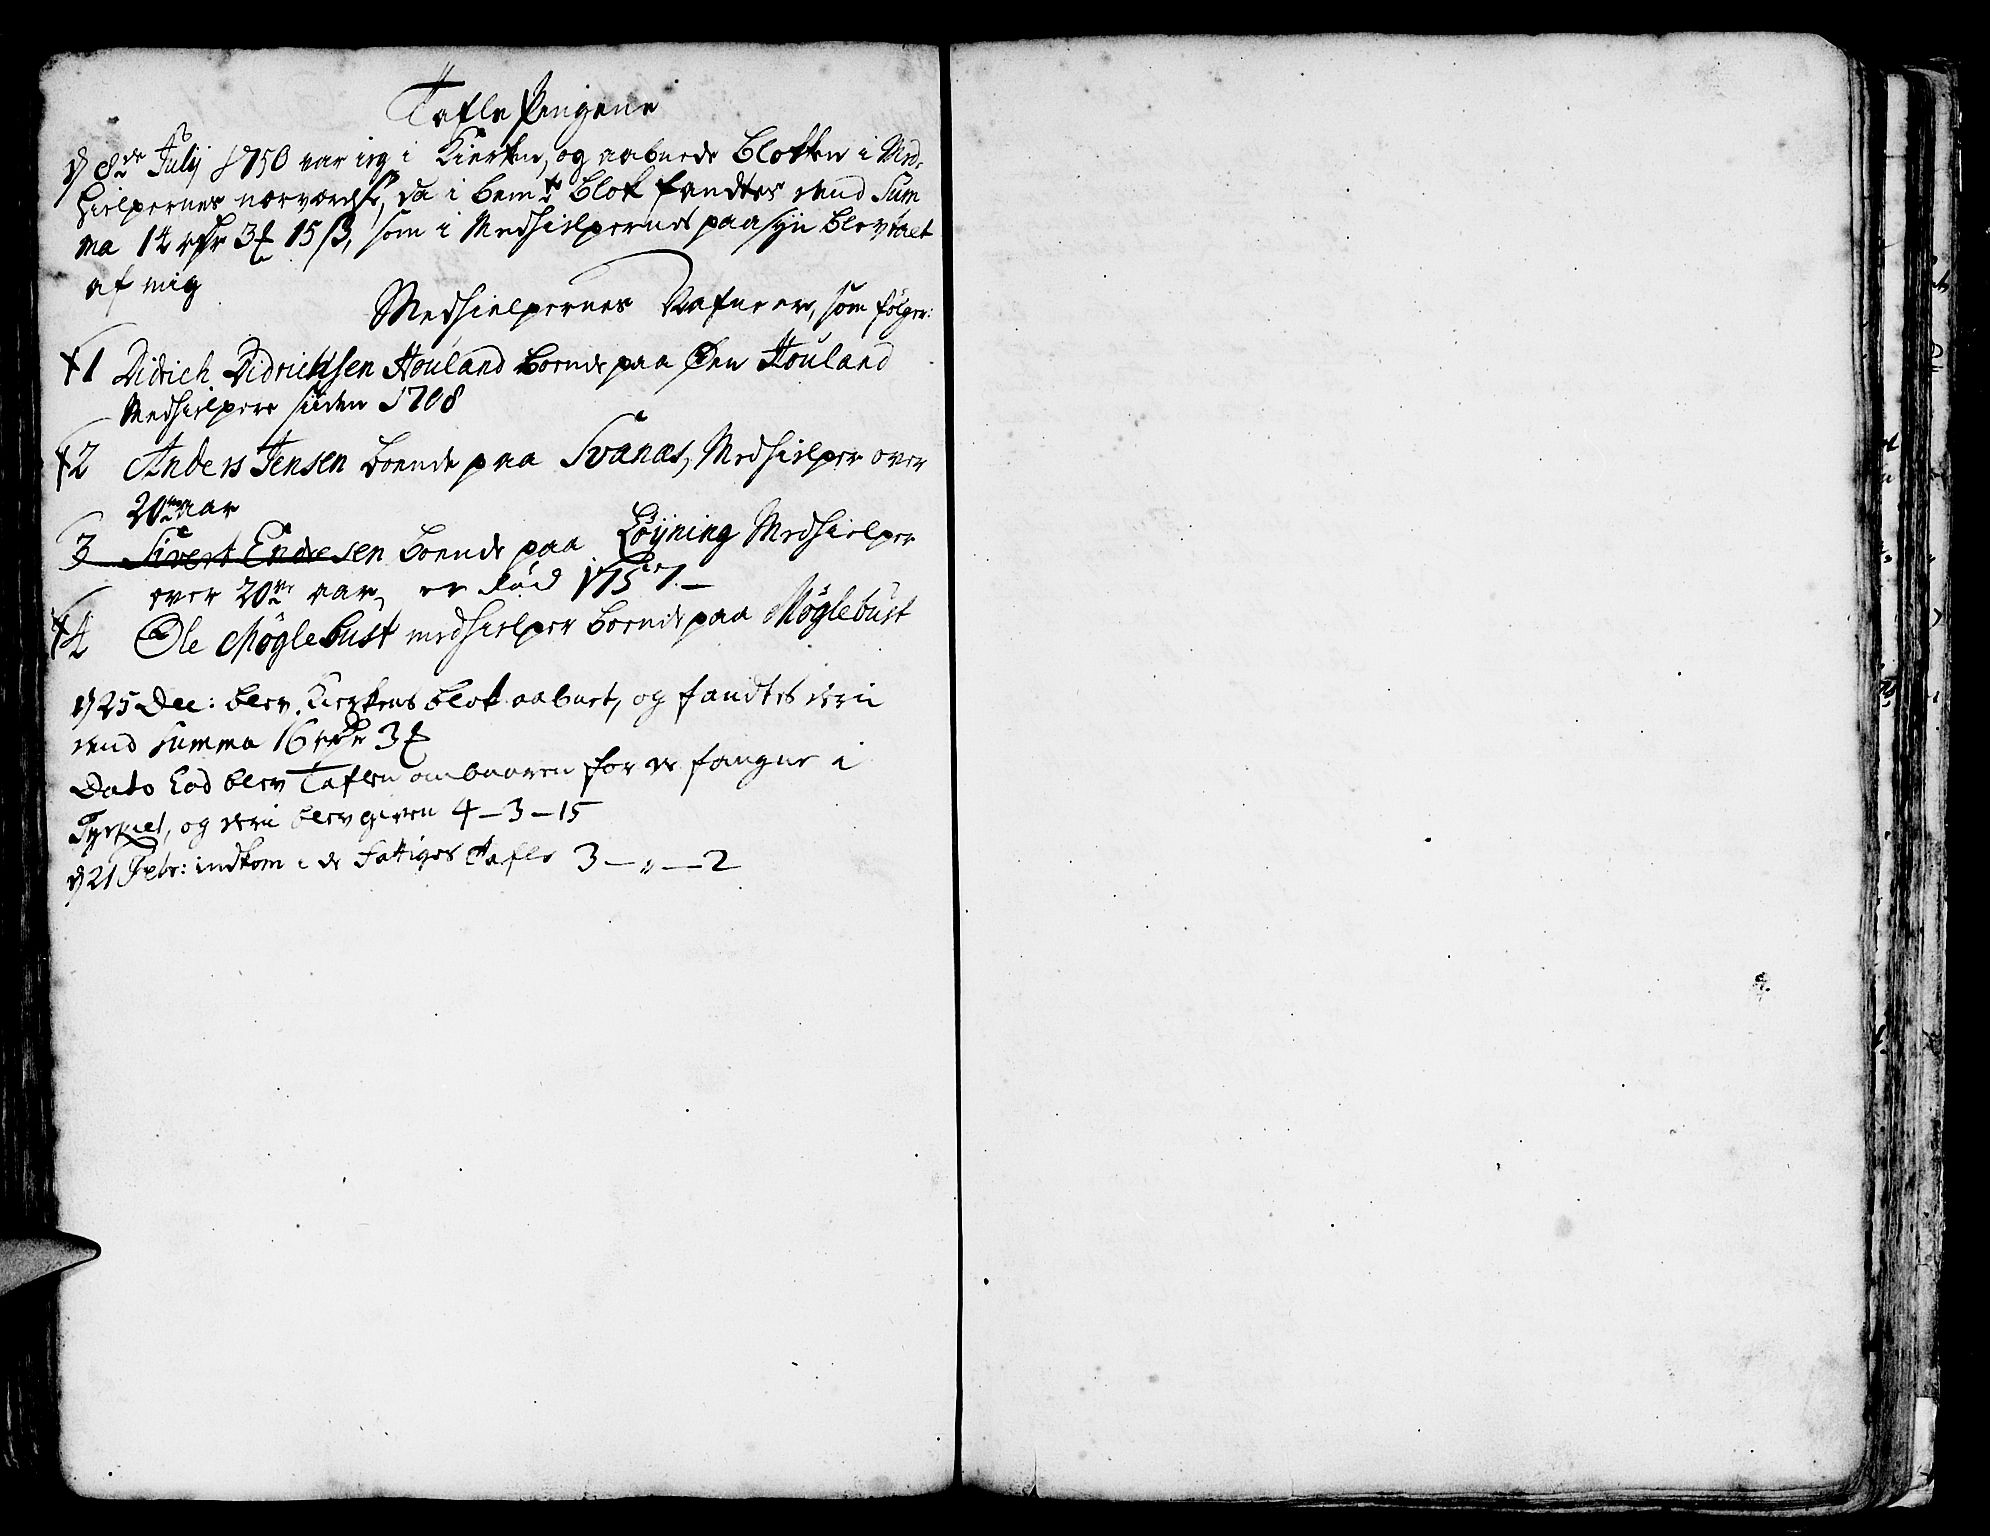 Tafle Pengene
d 8de Julij 1750 var ieg i Kierken, og aabnede Blokken i Med-
hielpernes nærværelse, da i bemte Blok fandtes dend Sum
ma 14 rdr 3 15 ß, som i Medhielpernes paasyn blev talt
af mig
Medhielpernes Nafne ere, som følger:
1 Didrich Didrichsen Houland boende paa Øen Houland
Medhielpere siiden 1708
2 Anders Jensen boende paa Svanøs, Medhielper over
20 aar
3 Sivert Endresen boende paa Løyning Medhielper
over 20 aar, er død 1757.
4 Ole Møglebust medhielper boende paa Møglebust
d 25 Dec: blev Kierkens blok aabnet, og fandtes deri
dend summa 16 rdr 3
Dato Eod blev Taflen ombaaren for de fangne i
Tyrkiet, og deri blev given 4 – 3 – 15
d 21 Febr: indkom i de fattiges Tafle 3 – „ – 2